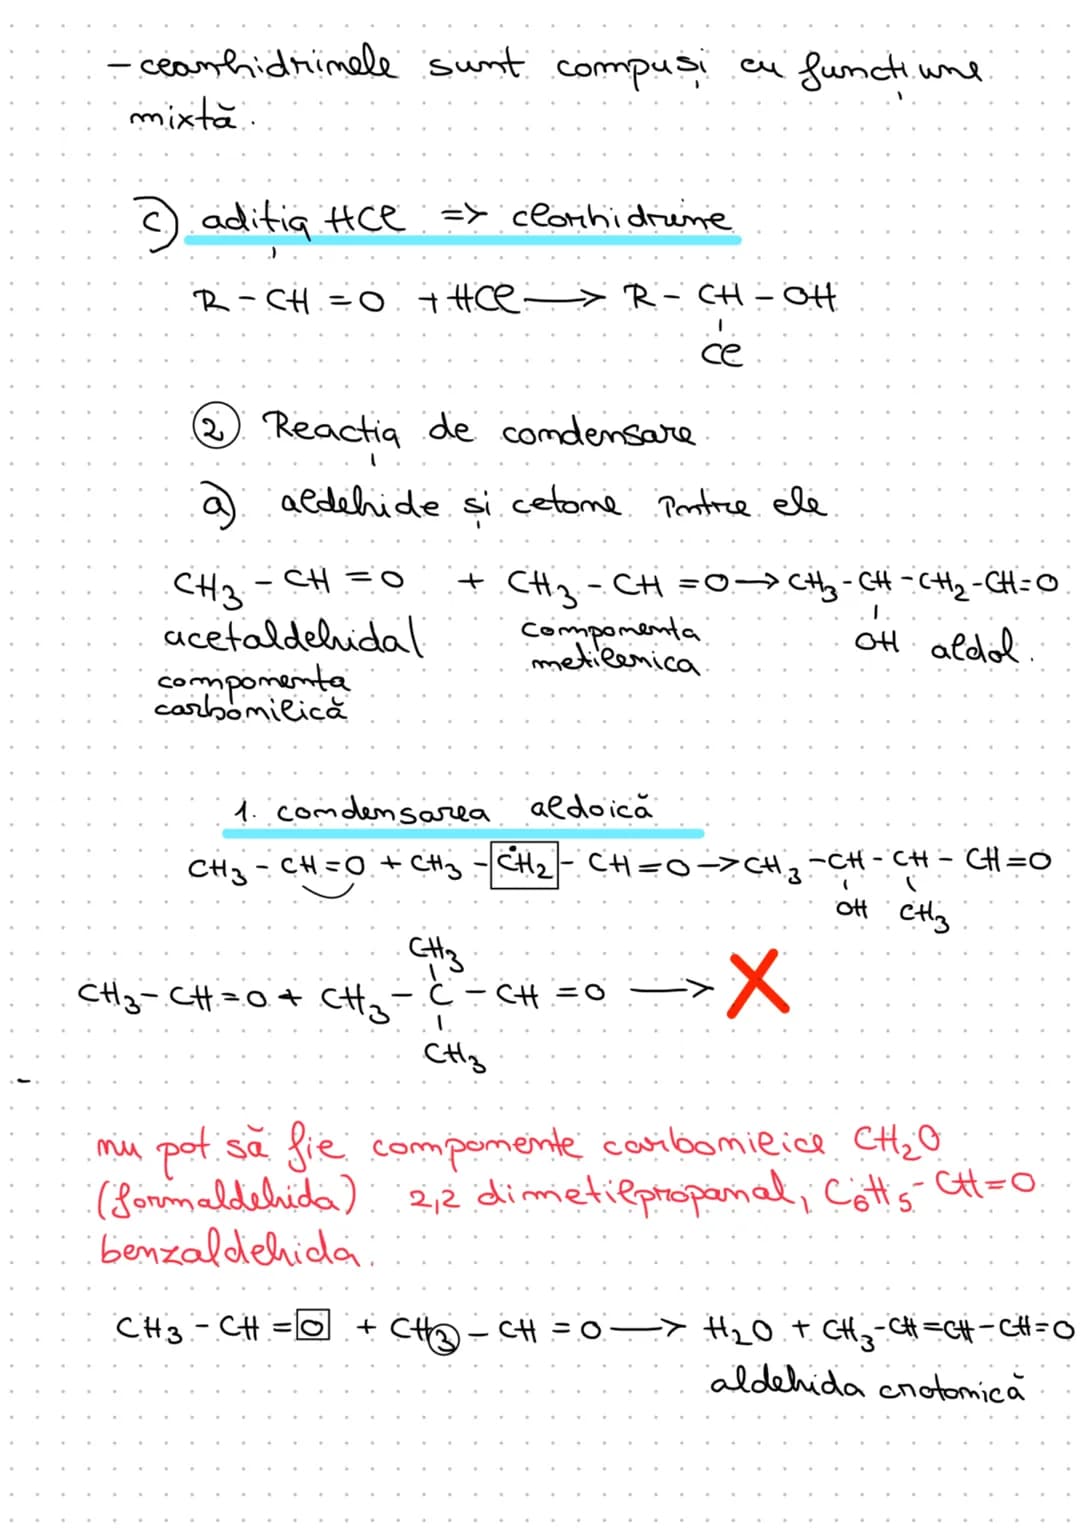 - cianhidrinele sunt compuși cu funcțiune
mixtă.
c) adiția HCl => clorhidrine
R - CH = O + HCl → R - CH - OH
Cl
② Reacția de condensare
a) aldehide și cetone între ele
CH₃ - CH = O + CH₃ - CH = O → CH₃ - CH - CH₂ - CH = O
OH aldol.
acetaldehida componenta
metilenica
componenta
carbonilică
1. condensarea aldoică
CH₃ - CH = O + CH₃ - CH₂ - CH = O → CH₃ - CH - CH - CH = O
OH CH₃
CH₃
CH₃ - CH = O + CH₃ - C - CH = O → X
CH₃
nu pot să fie componente carbonilice CH₂O
(formaldehida) 2,2 dimetilpropanal, C₆H₅ - CH = O
benzaldehida.
CH₃ - CH = O + CH₃ - CH = O → H₂O + CH₃ - CH = CH - CH = O
aldehida crotonică